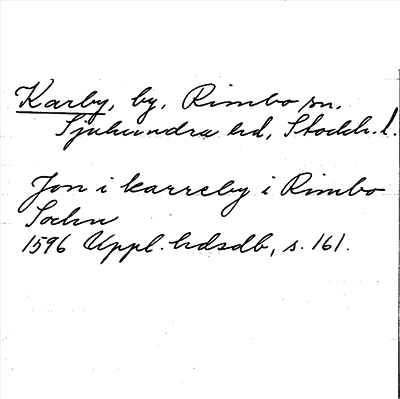 Karby, by, Rimbo sn,
Sjuhundra hd, Stockh. l.
Jon i karreby i Rimbo
Sochn
1596 Uppl. hdsdb, s. 161.